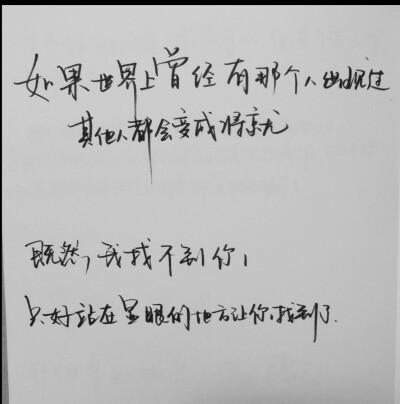 如果世界上曾经有那个人出现过
其他人都会变成将就
既然，我找不到你，
只好站在显眼的地方让你找到了.